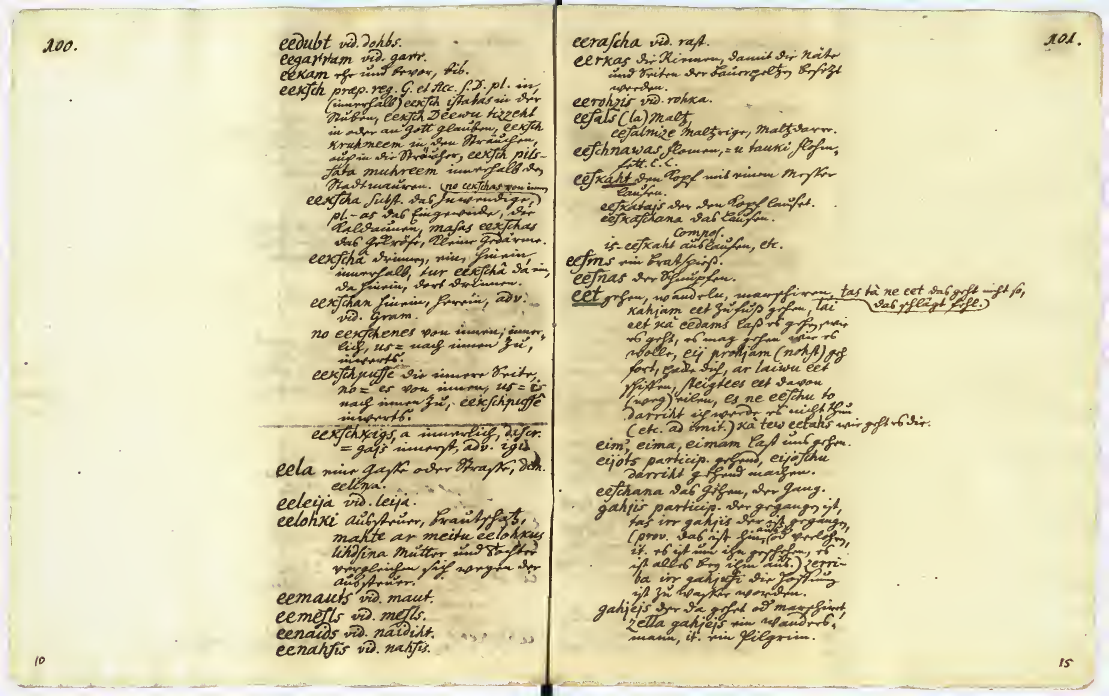 100.
eedubt vid. dohbs.
eegarram vid. garr.
eekam ehe und bevor, bis.
eekſch præp. reg. G. et Acc. S. D. pl. in,
(innerhalb) eekſch iſtabas in der
Stuben, eekſch Deewu tizzeht
in oder an Gott glauben, eekſch
kruhmeem in den Sträuchen,
auch in die Sträucher, eekſch pils-
ſata muhreem innerhalb den
Stadtmauren. (no eekſchas von innen
eekſcha ſubſt. das Inwendige,)
pl. -as das Eingeweide, die
Kaldaunen, maſas eekſchas
das Gekröſe, kleine Gedärme.
eekſchâ drinnen, ein, hinein,
innerhalb, tur eekſchâ da in,
da hinein, dort drinnen.
eekſchan hinein, herein, adv.
vid. Gram.
no eekſchenes von innen, inner-
lich, us = nach innen zu,
inwerts.
eekſchpuſſe die innere Seite,
no = es von innen, us = is
nach innen zu, eekſchpuſſê
inwerts.
eekſchkigs, a innerlich, daſcr.
= gajs innerſt, adv. igi
eela eine Gaſſe oder Straſſe, dem.
eelina.
eeleija vid. leija.
eelohki Ausſteuer, Brautſchatz,
mahte ar meitu eelohkus
lihdſina Mutter und Tochter
vergleichen ſich wegen der
Ausſteuer.
eemauts vid. maut.
eemeſls vid. meſls.
eenaids vid. naidiht.
eenahſis vid. nahſis.
10
101.
eeraſcha vid. raſt.
eerkas die Riemen, damit die Näte
und Seiten der Bauerpeltzen beſetzt
werden.
eerohzis vid. rohka.
eeſals (la) Maltz,
eeſalnize Maltzriege, Maltzdarre.
eeſchnawas Flomen, = u tauki Flohm-
fett. L. L.
eeſkaht den Kopf mit einem Meſſer
lauſen.
eeſkatajs der den Kopf lauſet.
eeſkaſchana das Lauſen.
Compoſ.
is-eeſkaht auslauſen, etc.
eeſms ein Bratſpieß.
eeſnas der Schnupfen.
eet gehen, wandeln, marſchiren, tas tà ne eet das geht nicht ſo,
kahjam eet zu fuß gehen, lai das ſchlägt fehl.)
eet kà eedams laß es gehn, wie
es geht, es mag gehen wie es
wolle, eij prohjam (nohſt) geh
fort, pade dich, ar laiwu eet
ſchiffen, ſteigtees eet davon
(weg) eilen, es ne eeſchu to
darriht ich werde es nicht thun
(etc. ad imit.) kà tew eetahs wie gehts dir.
eim', eima, eimam laſt uns gehen.
eijots particip. gehend, eijoſchu
darriht gehend machen.
eeſchana das Gehen, der Gang.
gahjis particip. der gegangen iſt,
tas irr gahjis der iſt gegangen,
(prov. das iſt hin, od. verlohren,
it. es iſt um ihn geſchehen, es
iſt alles bey ihm aus.) zerri-
ba irr gahjuſi die Hoffnung
iſt zu waſſer worden.
gahjejs der da gehet od. marſchiret,
zeļļa gahjejs ein wanders-
mann, it. ein Pilgrim.
15